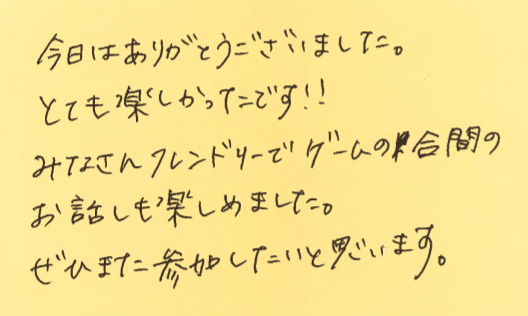 今日はありがとうございました。
とても楽しかったです!!
みなさんフレンドリーでゲームの合間の
お話しも楽しめました。
ぜひまた参加したいと思います。